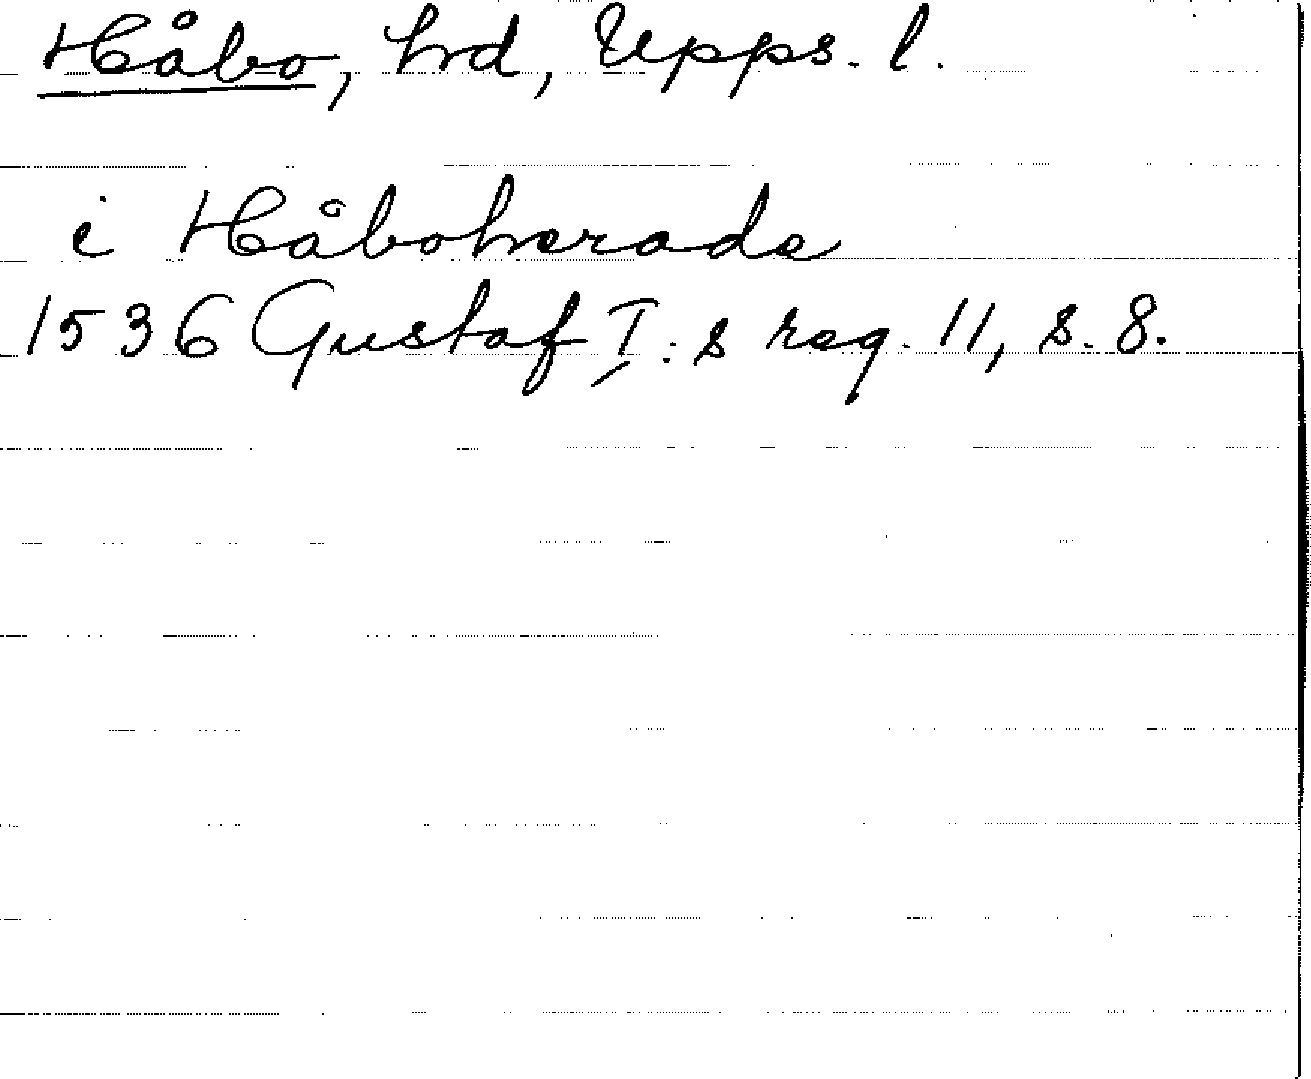 Håbo, hrd, Upps. l.
i Håboherade
1536 Gustaf I:s reg. 11, s. 8.